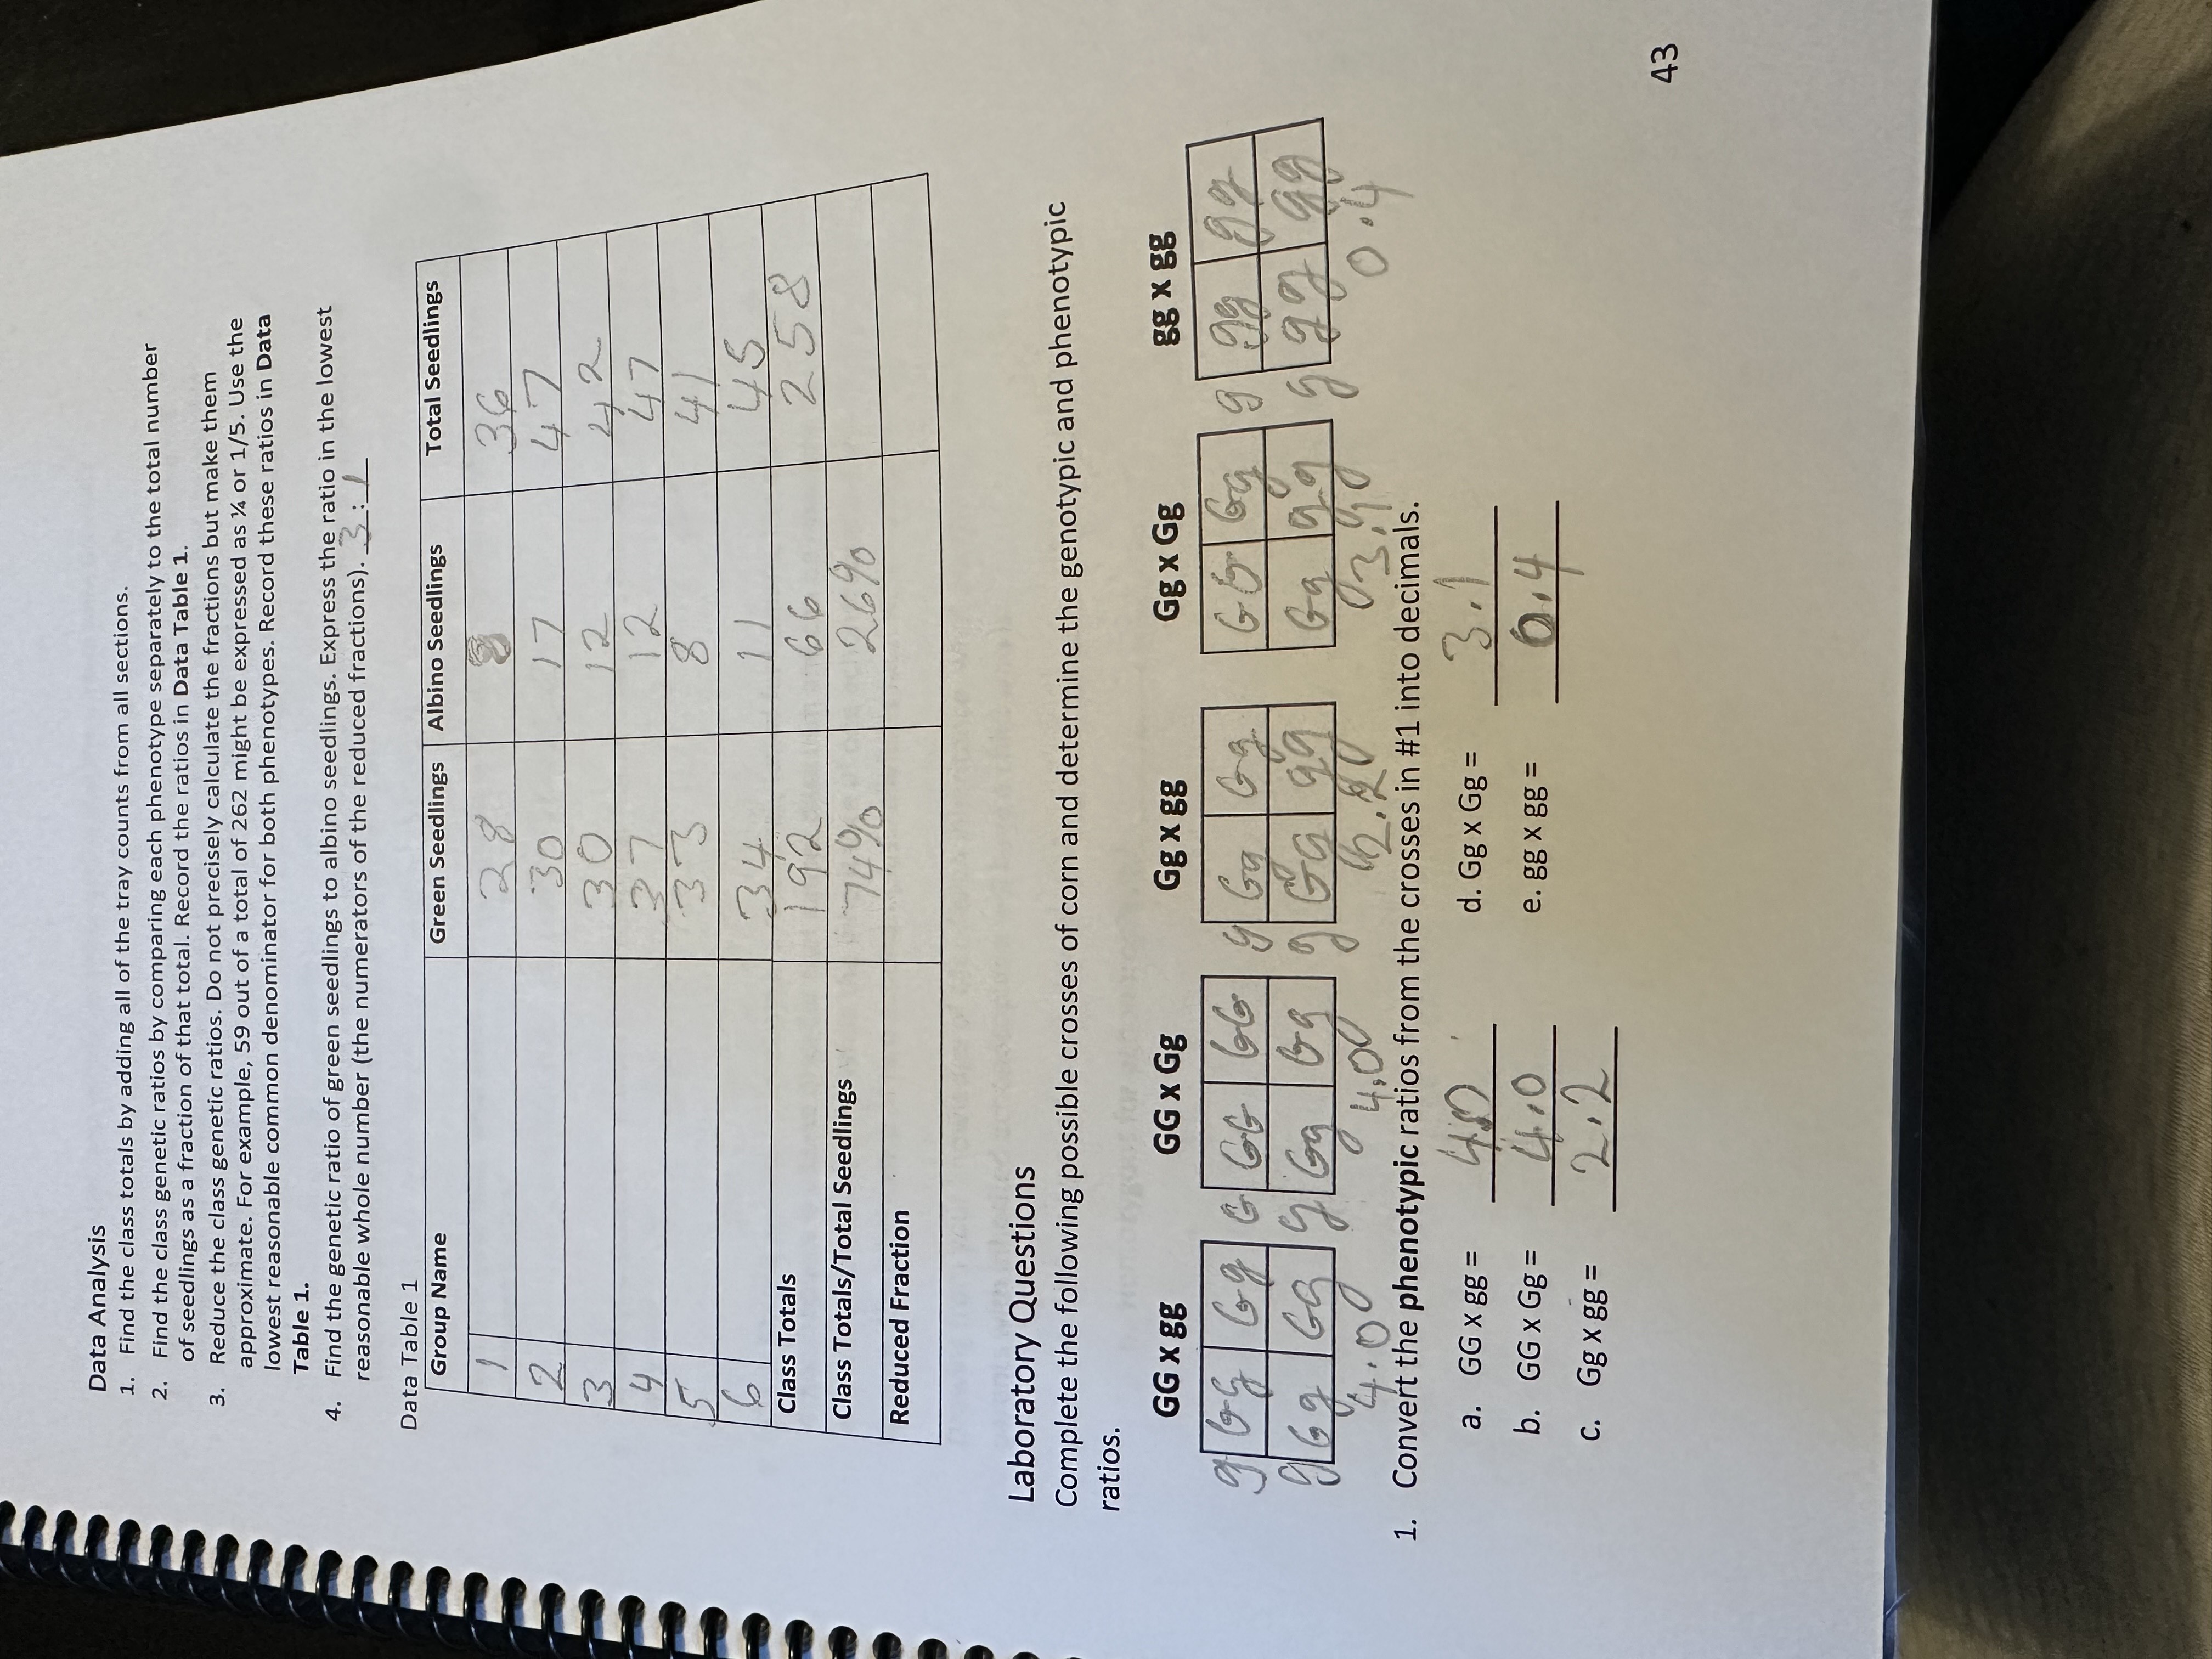 Data Analysis
1. Find the class totals by adding all of the tray counts from all sections.
2. Find the class genetic ratios by comparing each phenotype separately to the total number
of seedlings as a fraction of that total. Record the ratios in Data Table 1.
3. Reduce the class genetic ratios. Do not precisely calculate the fractions but make them
approximate. For example, 59 out of a total of 262 might be expressed as ¼ or 1/5. Use the
lowest reasonable common denominator for both phenotypes. Record these ratios in Data
Table 1.
4. Find the genetic ratio of green seedlings to albino seedlings. Express the ratio in the lowest
reasonable whole number (the numerators of the reduced fractions). 3:1
Data Table 1
Group Name Green Seedlings Albino Seedlings Total Seedlings
1 28 8 36
2 30 17 47
3 30 12 42
4 37 12 47
5 33 8 41
6 34 11 45
Class Totals 192 66 258
Class Totals/Total Seedlings 74% 26%
Reduced Fraction
Laboratory Questions
Complete the following possible crosses of corn and determine the genotypic and phenotypic
ratios.
GG x gg GG x Gg Gg x gg Gg x Gg gg x gg
g Gg Gg G GG GG g Gg Gg GG Gg g gg gg
g Gg Gg g Gg Gg g Gg gg Gg gg g gg gg
4.0 4.0 2.2 3.1 0.4
1. Convert the phenotypic ratios from the crosses in #1 into decimals.
a. GG x gg = 4.0 d. Gg x Gg = 3.1
b. GG x Gg = 4.0 e. gg x gg = 0.4
c. Gg x gg = 2.2
43